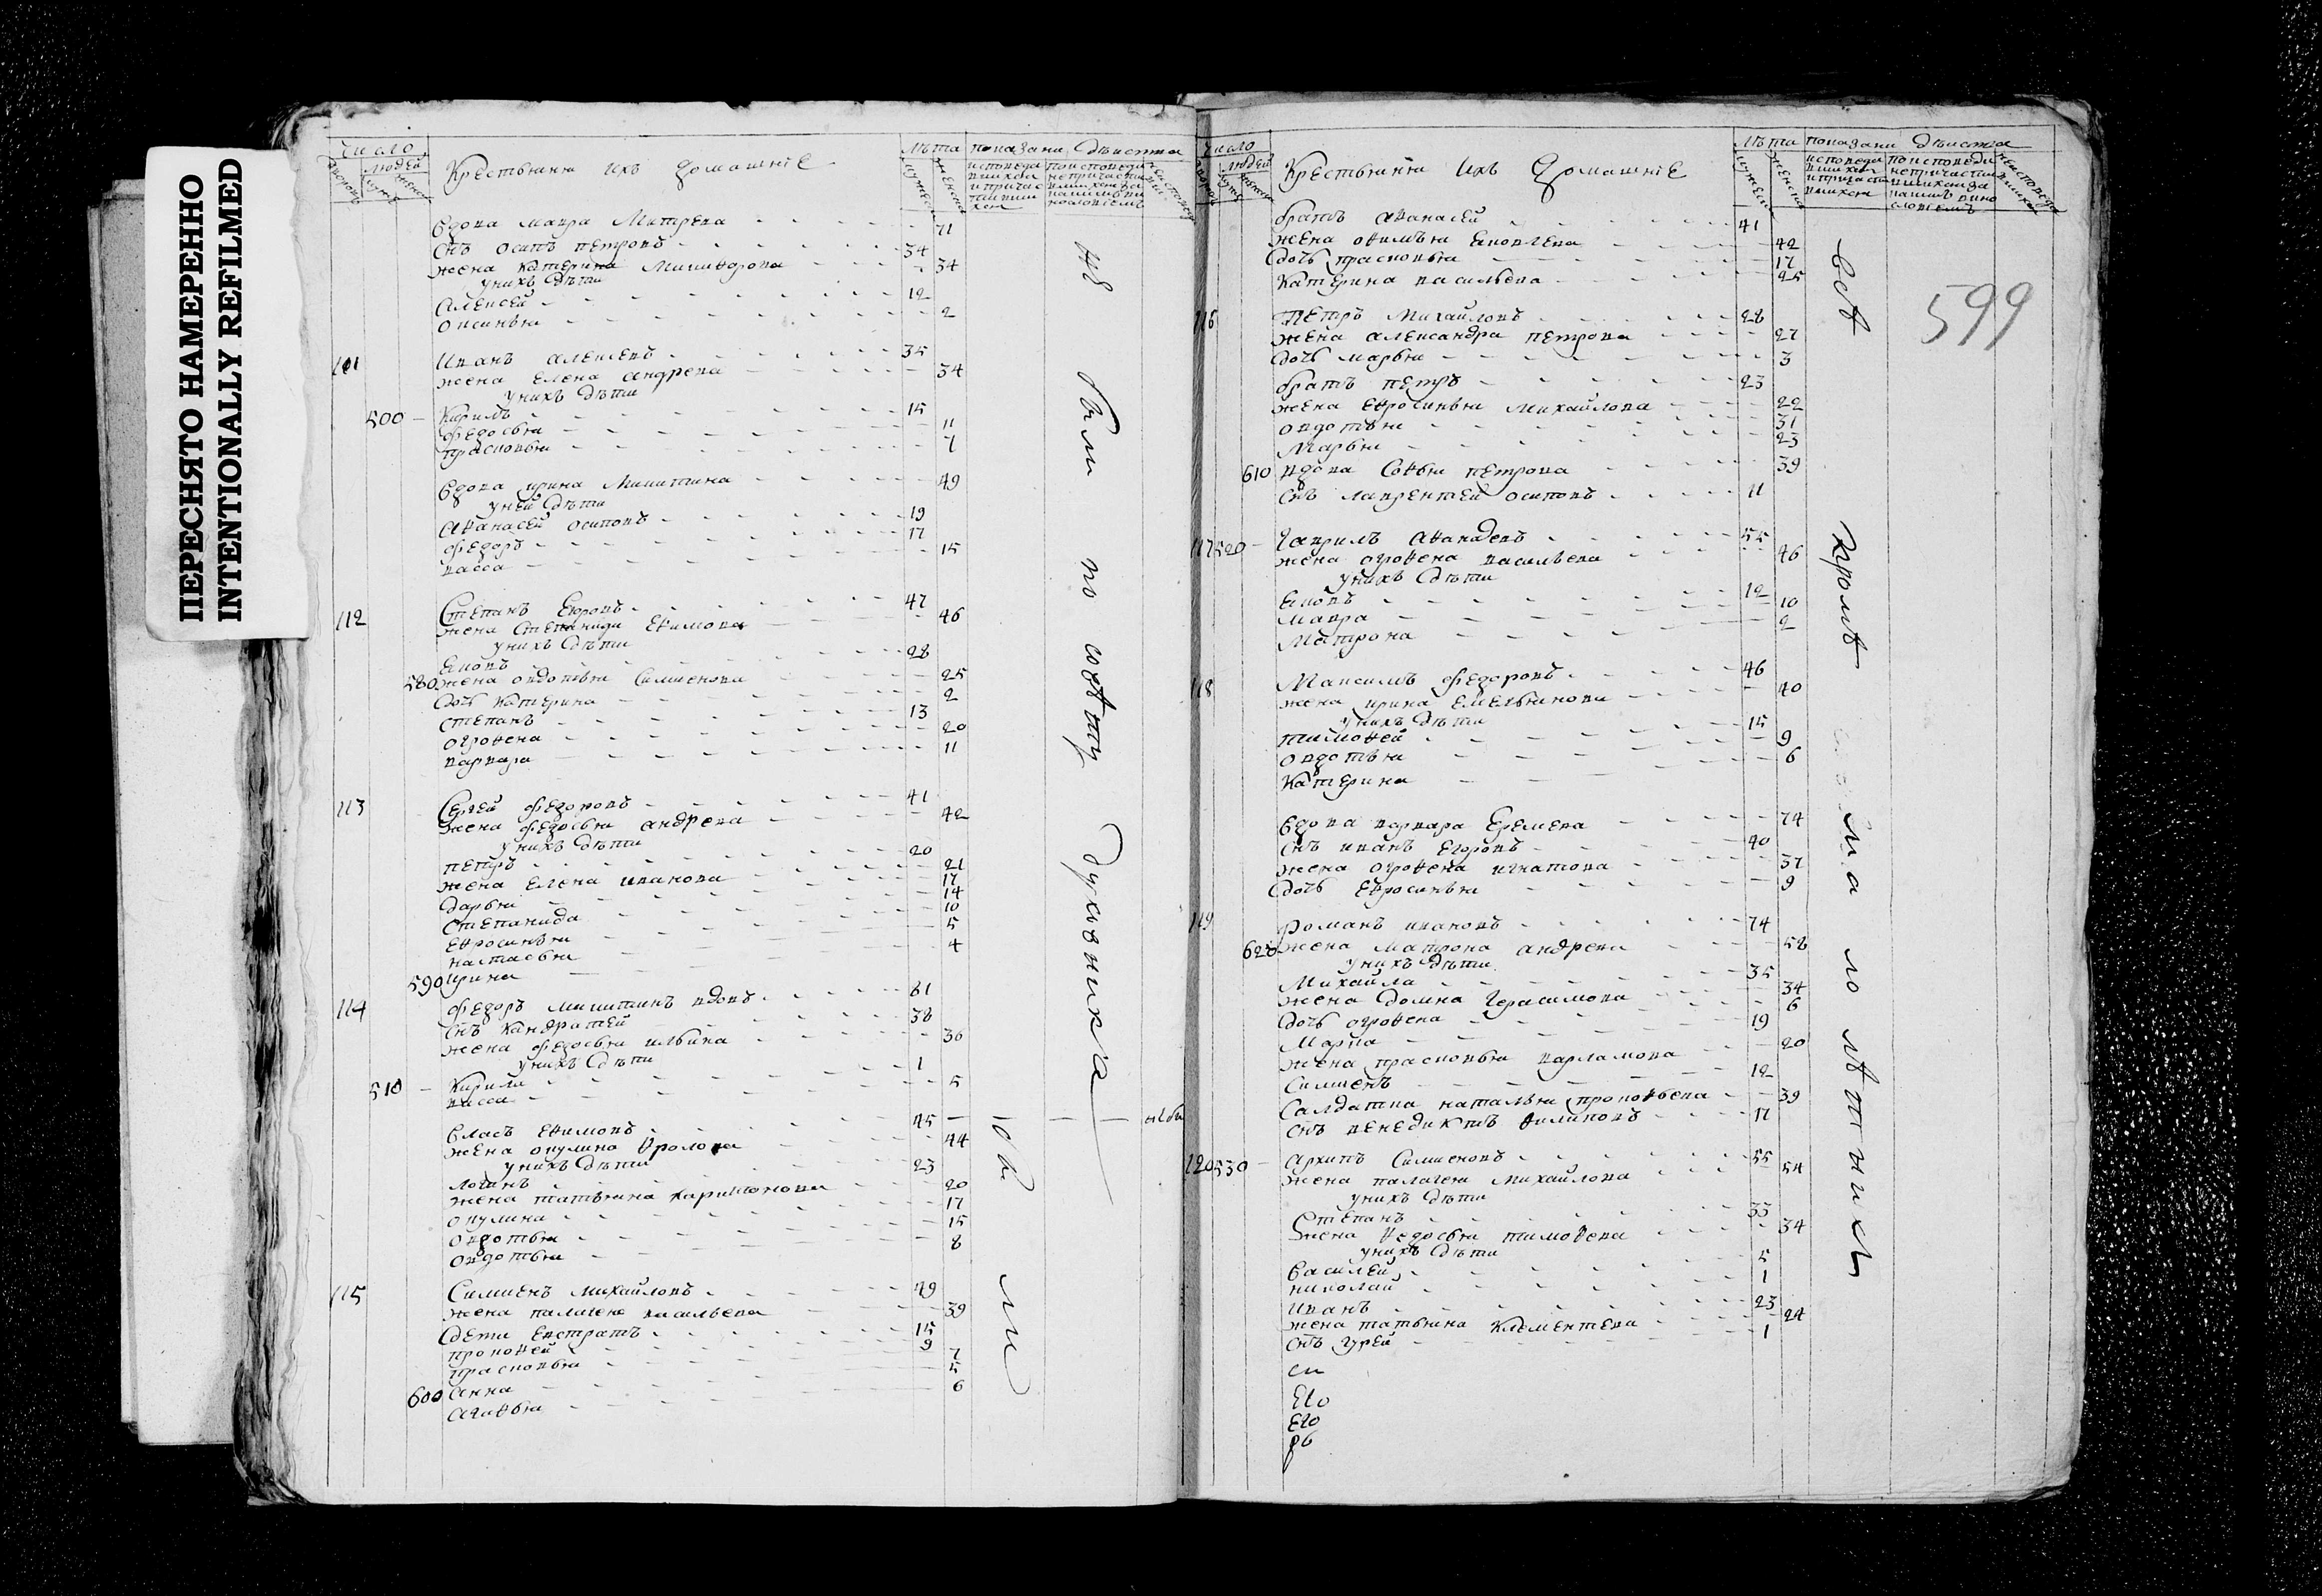 ПЕРЕСНЯТО НАМЕРЕННО
INTENTIONALLY REFILMED
Число
людей
Крестьяня ихъ домашнїе
Лѣта
показани дѣиства
вдова мавра Митрева 71
снъ осипъ петровъ 34
жена катерина Миниѳорова 34
унихъ дѣти
алексей 12
оксинья 2
111 иванъ алексевъ 35
жена елена андрева 34
унихъ дѣти
500 кирилъ 15
федосья 11
прасковья 7
вдова ирина Микитина 49
уней дѣти
аѳанасей осиповъ 19
федоръ 17
васса 15
112 Степанъ Егоровъ 47
жена Степанида Еѳимова 46
унихъ дѣти
Ековъ 28
580 жена овдотья Симионова 25
дочь катерина 2
степанъ 13
огроѳена 20
варвара 11
113 Сергей федоровъ 41
жена федосья андрева 42
унихъ дѣти
петръ 20
жена елена иванова 21
дарья 17
степанида 14
еѳросинья 10
настасья 5
590 ирина 4
114 федоръ микитинъ вдовъ 61
снъ кандратей 38
жена федосья ильина 36
унихъ дѣти
510 кирила 1
васса 5
власъ еѳимовъ 45
жена окулина ѳролова 44
унихъ дѣти
логинъ 23
жена татьяна харитонова 20
окулина 17
овдотья 15
овдотья 8
115 Симионъ михайловъ 49
жена палагея васильева 39
дети евстратъ 15
прокоѳей 9
прасковья 7
600 анна 5
агаѳья 6
не были по совѣту духовника
были
Число
людей
Крестьяня ихъ домашнїе
Лѣта
показани дѣиства
599
братъ аѳанасей 41
жена оѳимья яковлева 42
дочь прасковья 17
катерина васильева 25
116 Петръ михайловъ 28
жена александра петрова 27
дочь марья 3
братъ петръ 23
жена еѳросинья михайлова 22
овдотья 31
Марья 23
610 вдова Соѳья петрова 39
снъ лаврентей осиповъ 11
117 520 гаврилъ аѳанасевъ 55
жена огроѳена васильева 46
унихъ дѣти
яковъ 12
мавра 10
матрона 2
118 Максимъ федоровъ 46
жена ирина емельянова 40
унихъ дѣти
тимоѳей 15
овдотья 9
катерина 6
вдова варвара еремева 74
снъ иванъ егоровъ 40
жена огроѳена игнатова 37
дочь еѳросинья 9
119 романъ ивановъ 74
620 жена матрона андрева 58
унихъ дѣти
михайла 35
жена домна герасимова 34
дочь огроѳена 6
марка 19
жена прасковья варламова 20
симионъ 12
Салдатка наталья прокоѳьева 39
снъ венедиктъ ѳилиповъ 17
120 530 архипъ Симионовъ 55
жена палагея михайлова 54
унихъ дѣти
Степанъ 33
жена ѳедосья тимоѳева 34
унихъ дѣти
василей 5
николай 1
иванъ 23
жена татьяна клементева 24
снъ гурей 1
Его
Его
рб
всѣ кромѣ малолѣтнихъ